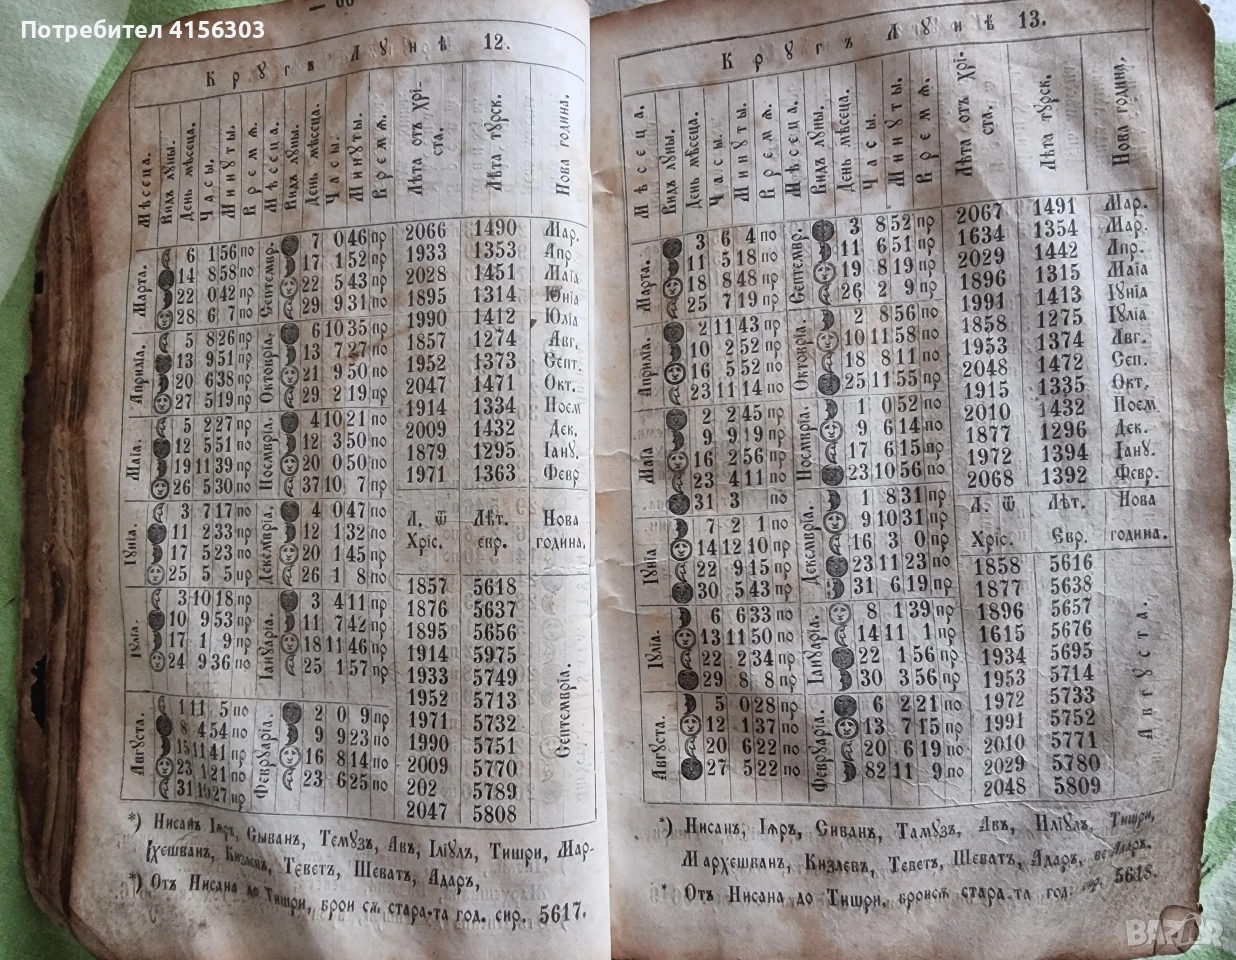 Потребител 4156303
— 66
Крꙋгъ Лꙋнѣ 12.
Мѣсеца. Видъ лꙋны. День мѣсеца. Часы. Минꙋты. Времѧ. Мѣсеца. Видъ лꙋны. День мѣсеца. Часы. Минꙋты. Времѧ. Лѣта отъ Хрі-ста. Лѣта тꙋрск. Нова година.
Марта. 6 1 56 по Септемвр. 7 0 46 пр 2066 1490 Мар.
14 8 58 по 17 1 52 пр 1933 1353 Апр
22 0 42 пр 22 5 43 пр 2028 1451 Маіа
28 6 7 по 29 9 31 по 1895 1314 Юніа
1990 1412 Юліа
Априліа. 5 8 26 пр Октовріа. 6 10 35 пр 1857 1274 Авг.
13 9 51 по 13 7 27 по 1952 1373 Септ.
20 6 38 пр 21 9 50 по 2047 1471 Окт.
27 5 19 по 29 2 19 пр 1914 1334 Ноем
Маіа. 5 2 27 пр Ноемвріа. 4 10 21 по 2009 1432 Дек.
12 5 51 по 12 3 50 по 1879 1295 Іанꙋ.
19 11 39 пр 20 0 50 по 1971 1363 Февр
26 5 30 по 37 10 7 пр
Іꙋніа. 3 7 17 по Декемвріа. 4 0 47 по Л. ѿ Хріс. Лѣт. евр. Нова година.
11 2 33 пр 12 1 32 по
17 5 23 по 20 1 45 пр
25 5 5 пр 26 1 8 по 1857 5618
Іꙋліа. 3 10 18 пр Іанꙋаріа. 3 4 11 пр 1876 5637
10 9 53 пр 11 7 42 пр 1895 5656
17 1 9 пр 18 11 46 пр 1914 5975
24 9 36 по 25 1 57 пр 1933 5749
1952 5713
Августа. 1 11 5 по Феврꙋаріа. 2 0 9 пр 1971 5732
8 4 54 по 9 9 23 по 1990 5751
15 11 41 пр 16 8 14 по 2009 5770
23 1 21 по 23 6 25 по 202 5789
31 10 27 пр 2047 5808
Септемвріа.
*) Нисанъ Іѧръ, Сыванъ, Темꙋзъ, Авъ, Іліꙋлъ, Тишри, Мар-
хешванъ, Кизлевъ, Теветъ, Шеватъ, Адаръ,
*) Отъ Нисана до Тишри, брои сѧ стара-та год. сир. 5617.
Крꙋгъ Лꙋнѣ 13.
Мѣсеца. Видъ лꙋны. День мѣсеца. Часы. Минꙋты. Времѧ. Мѣсеца. Видъ лꙋны. День мѣсеца. Часы. Минꙋты. Времѧ. Лѣта отъ Хрі-ста. Лѣта тꙋрск. Нова година.
Марта. 3 6 4 по Септемвр. 3 8 52 пр 2067 1491 Мар.
11 5 18 по 11 6 51 пр 1634 1354 Мар.
18 8 48 пр 19 8 19 пр 2029 1442 Апр.
25 7 19 по 26 2 9 пр 1896 1315 Маіа
1991 1413 Іꙋніа
Априліа. 2 11 43 пр Октовріа. 2 8 56 по 1858 1275 Іꙋліа
10 2 52 пр 10 11 58 пр 1953 1374 Авг.
16 5 52 по 18 8 11 по 2048 1472 Сеп.
23 11 14 по 25 11 55 пр 1915 1335 Окт,
Маіа 2 2 45 пр Ноемвріа. 1 0 52 по 2010 1432 Ноем
9 9 19 пр 9 6 14 по 1877 1296 Дек.
16 2 56 пр 17 6 15 пр 1972 1394 Іанꙋ.
23 4 11 по 23 10 56 по 2068 1392 Февр.
31 3 по
Іꙋніа 7 2 1 по Декемвріа. 1 8 31 пр Л. ѿ Хріс. Лѣт. Евр. Нова година.
14 12 10 пр 9 10 31 пр
22 9 15 пр 16 3 0 пр
30 5 43 пр 23 11 23 по 1858 5616
31 6 19 пр 1877 5638
Іꙋліа. 6 6 33 по Іанꙋаріа. 8 1 39 пр 1896 5657
13 11 50 по 14 11 1 пр 1615 5676
22 2 34 пр 22 1 56 пр 1934 5695
29 8 8 пр 30 3 56 пр 1953 5714
Августа. 5 0 28 пр Феврꙋаріа. 6 2 21 по 1972 5733
12 1 37 по 13 7 15 пр 1991 5752
20 6 22 по 20 6 19 по 2010 5771
27 5 22 по 82 11 9 по 2029 5780
2048 5809
Августа.
*) Нисанъ, Іѧръ, Сиванъ, Тамꙋзъ, Авъ, Иліꙋлъ, Тишри,
Мархешванъ, Кизлевъ, Теветъ, Шеватъ, Адаръ,
* Отъ Нисана до Тишри, броисѧ стара-та год: сир. 5618.
BAZAR